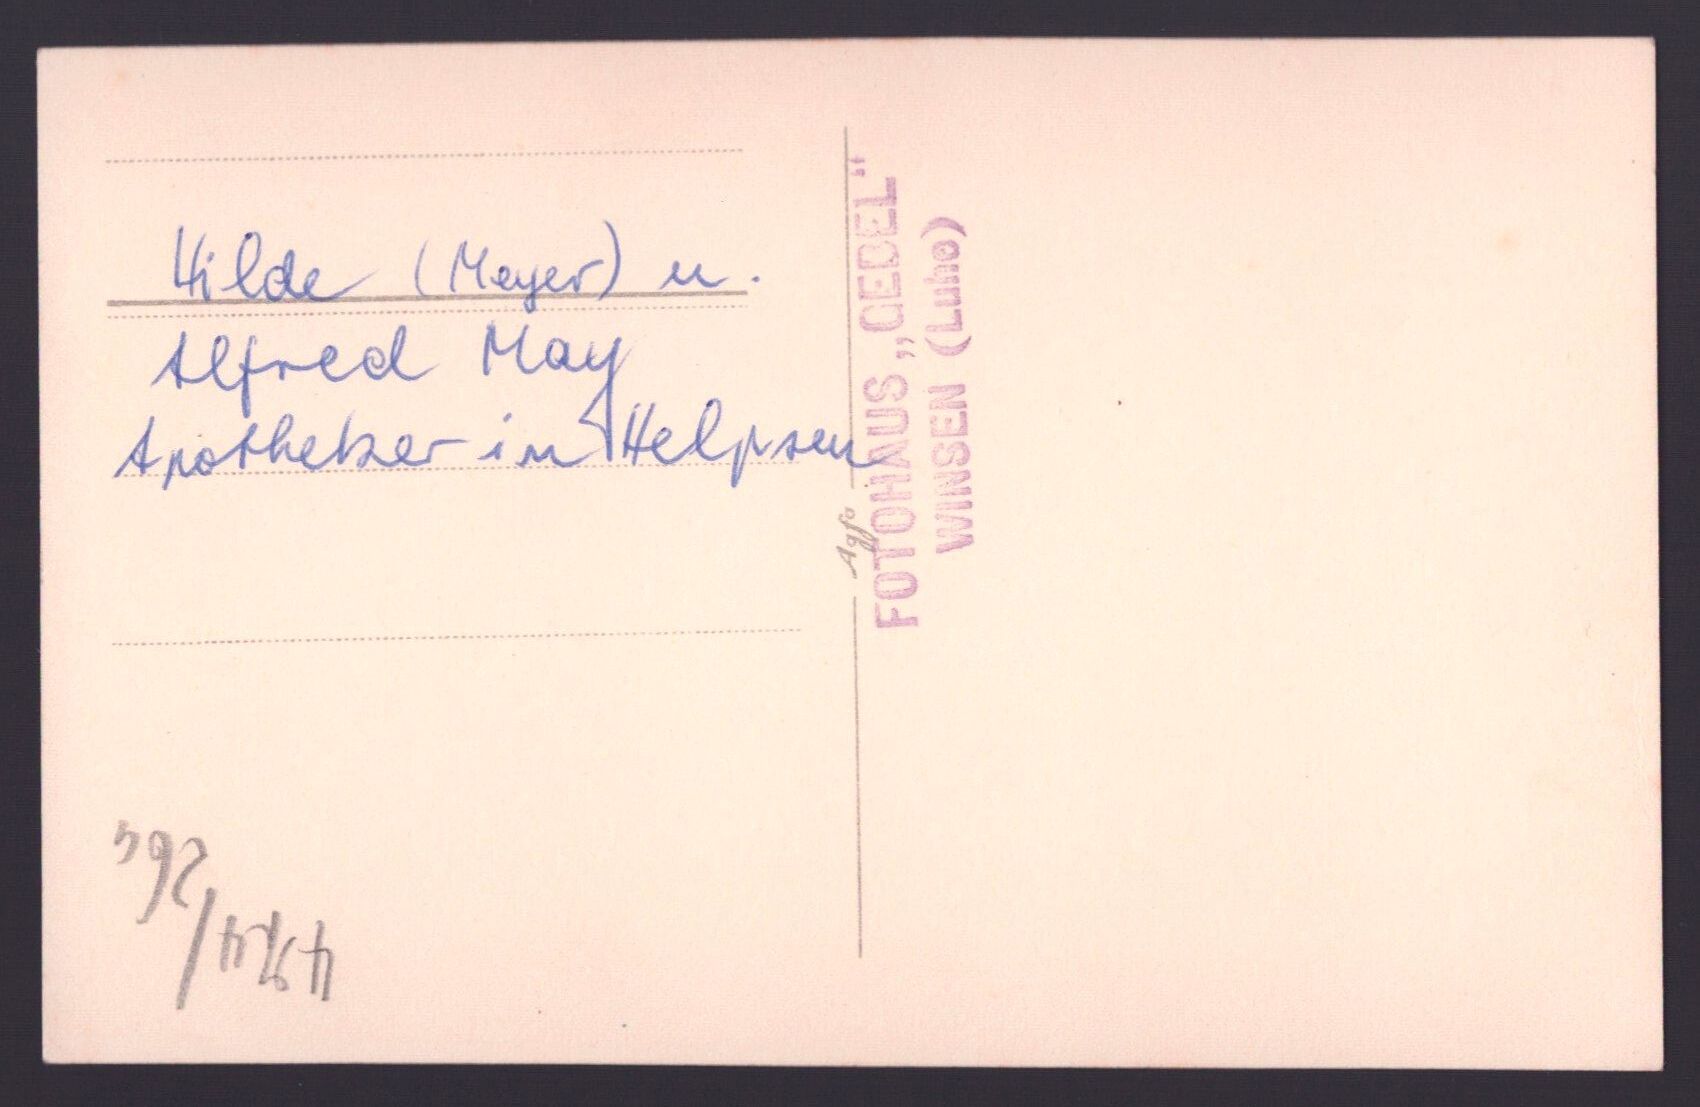 Hilde (Meyer) u.
Alfred May
Apotheker in Helpsen
Agfa
FOTOHAUS „GEBEL“
WINSEN (Luhe)